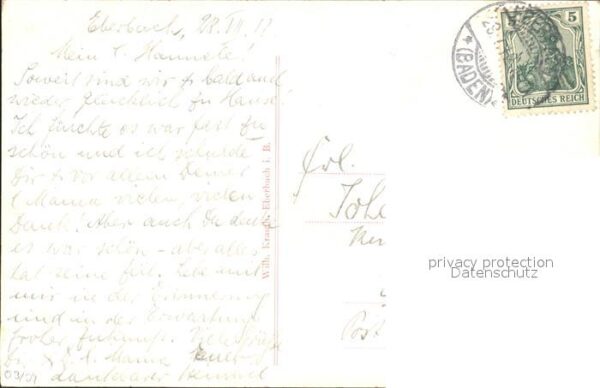 Eberbach, 28.VII.11
Mein l. Hannele!
Soweit sind wir ja bald auch
wieder glücklich zu Hause.
Ich fürchte es war fast zu
schön und ich schulde
Dir & vor allem Deiner
l. Mama vielen, vielen
Dank! Aber auch Du denke
es war schön - aber alles
hat seine Zeit. Lebe mit
mir in der Erinnerung
und in der Erwartung
froher Zukunft. Viele Grüße
Dir & d. l. Mama Euer
dankbarer
03/09
Wilh. Krauth, Eberbach i. B.
Frl.
Joh
Post
5
DEUTSCHES REICH
(BADEN)
privacy protection
Datenschutz